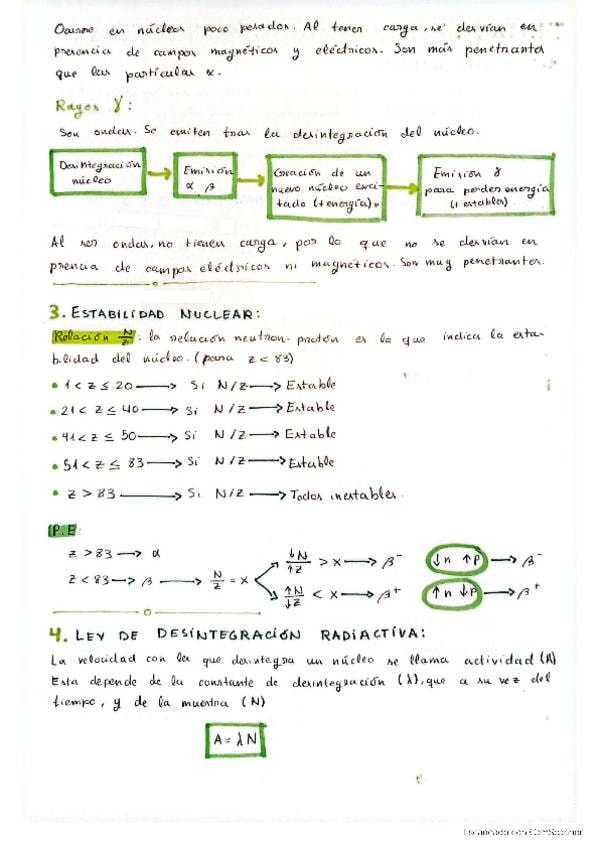 Ocurre en núcleos poco pesados. Al tener carga, se desvían en
presencia de campos magnéticos y eléctricos. Son más penetrantes
que las partículas α.
Rayos γ:
Son ondas. Se emiten tras la desintegración del núcleo.
Desintegración núcleo → Emisión α, β → Creación de un nuevo núcleo exci-tado (+energía). → Emisión γ para perder energía (+ estables)
Al ser ondas, no tienen carga, por lo que no se desvían en
prencia de campos eléctricos ni magnéticos. Son muy penetrantes.
3. ESTABILIDAD NUCLEAR:
Relación N/Z: la relación neutron-protón es lo que indica la esta-
bilidad del núcleo. (para Z < 83)
• 1 < Z ≤ 20 → Si N/Z → Estable
• 21 < Z ≤ 40 → Si N/Z → Estable
• 41 < Z ≤ 50 → Si N/Z → Estable
• 51 < Z ≤ 83 → Si N/Z → Estable
• Z > 83 → Si N/Z → Todos inestables.
P.E:
Z > 83 → α
Z < 83 → β → N/Z = X
↓N/↑Z > X → β⁻ ↓n ↑P → β⁻
↑N/↓Z < X → β⁺ ↑n ↓P → β⁺
4. LEY DE DESINTEGRACIÓN RADIACTIVA:
La velocidad con la que desintegra un núcleo se llama actividad (A)
Esta depende de la constante de desintegración (λ), que a su vez del
tiempo, y de la muestra (N)
A = λN
Escaneado con CamScanner